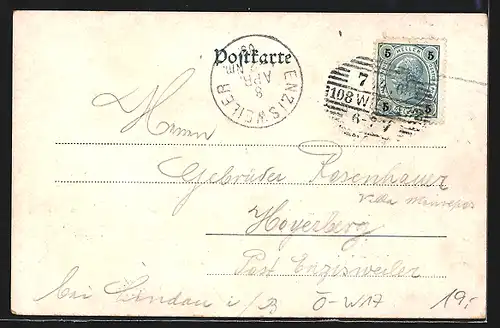 Postkarte
ENZISWEILER
8
APR
NM.
5 HELLER 5
7
108 W
6-7 V
5 5
Herrn
Gebrüder Rosenhauer
Villa Monrepos
Hoyerberg
Post Enzisweiler
bei Lindau i/B
Ö-W17
19,-